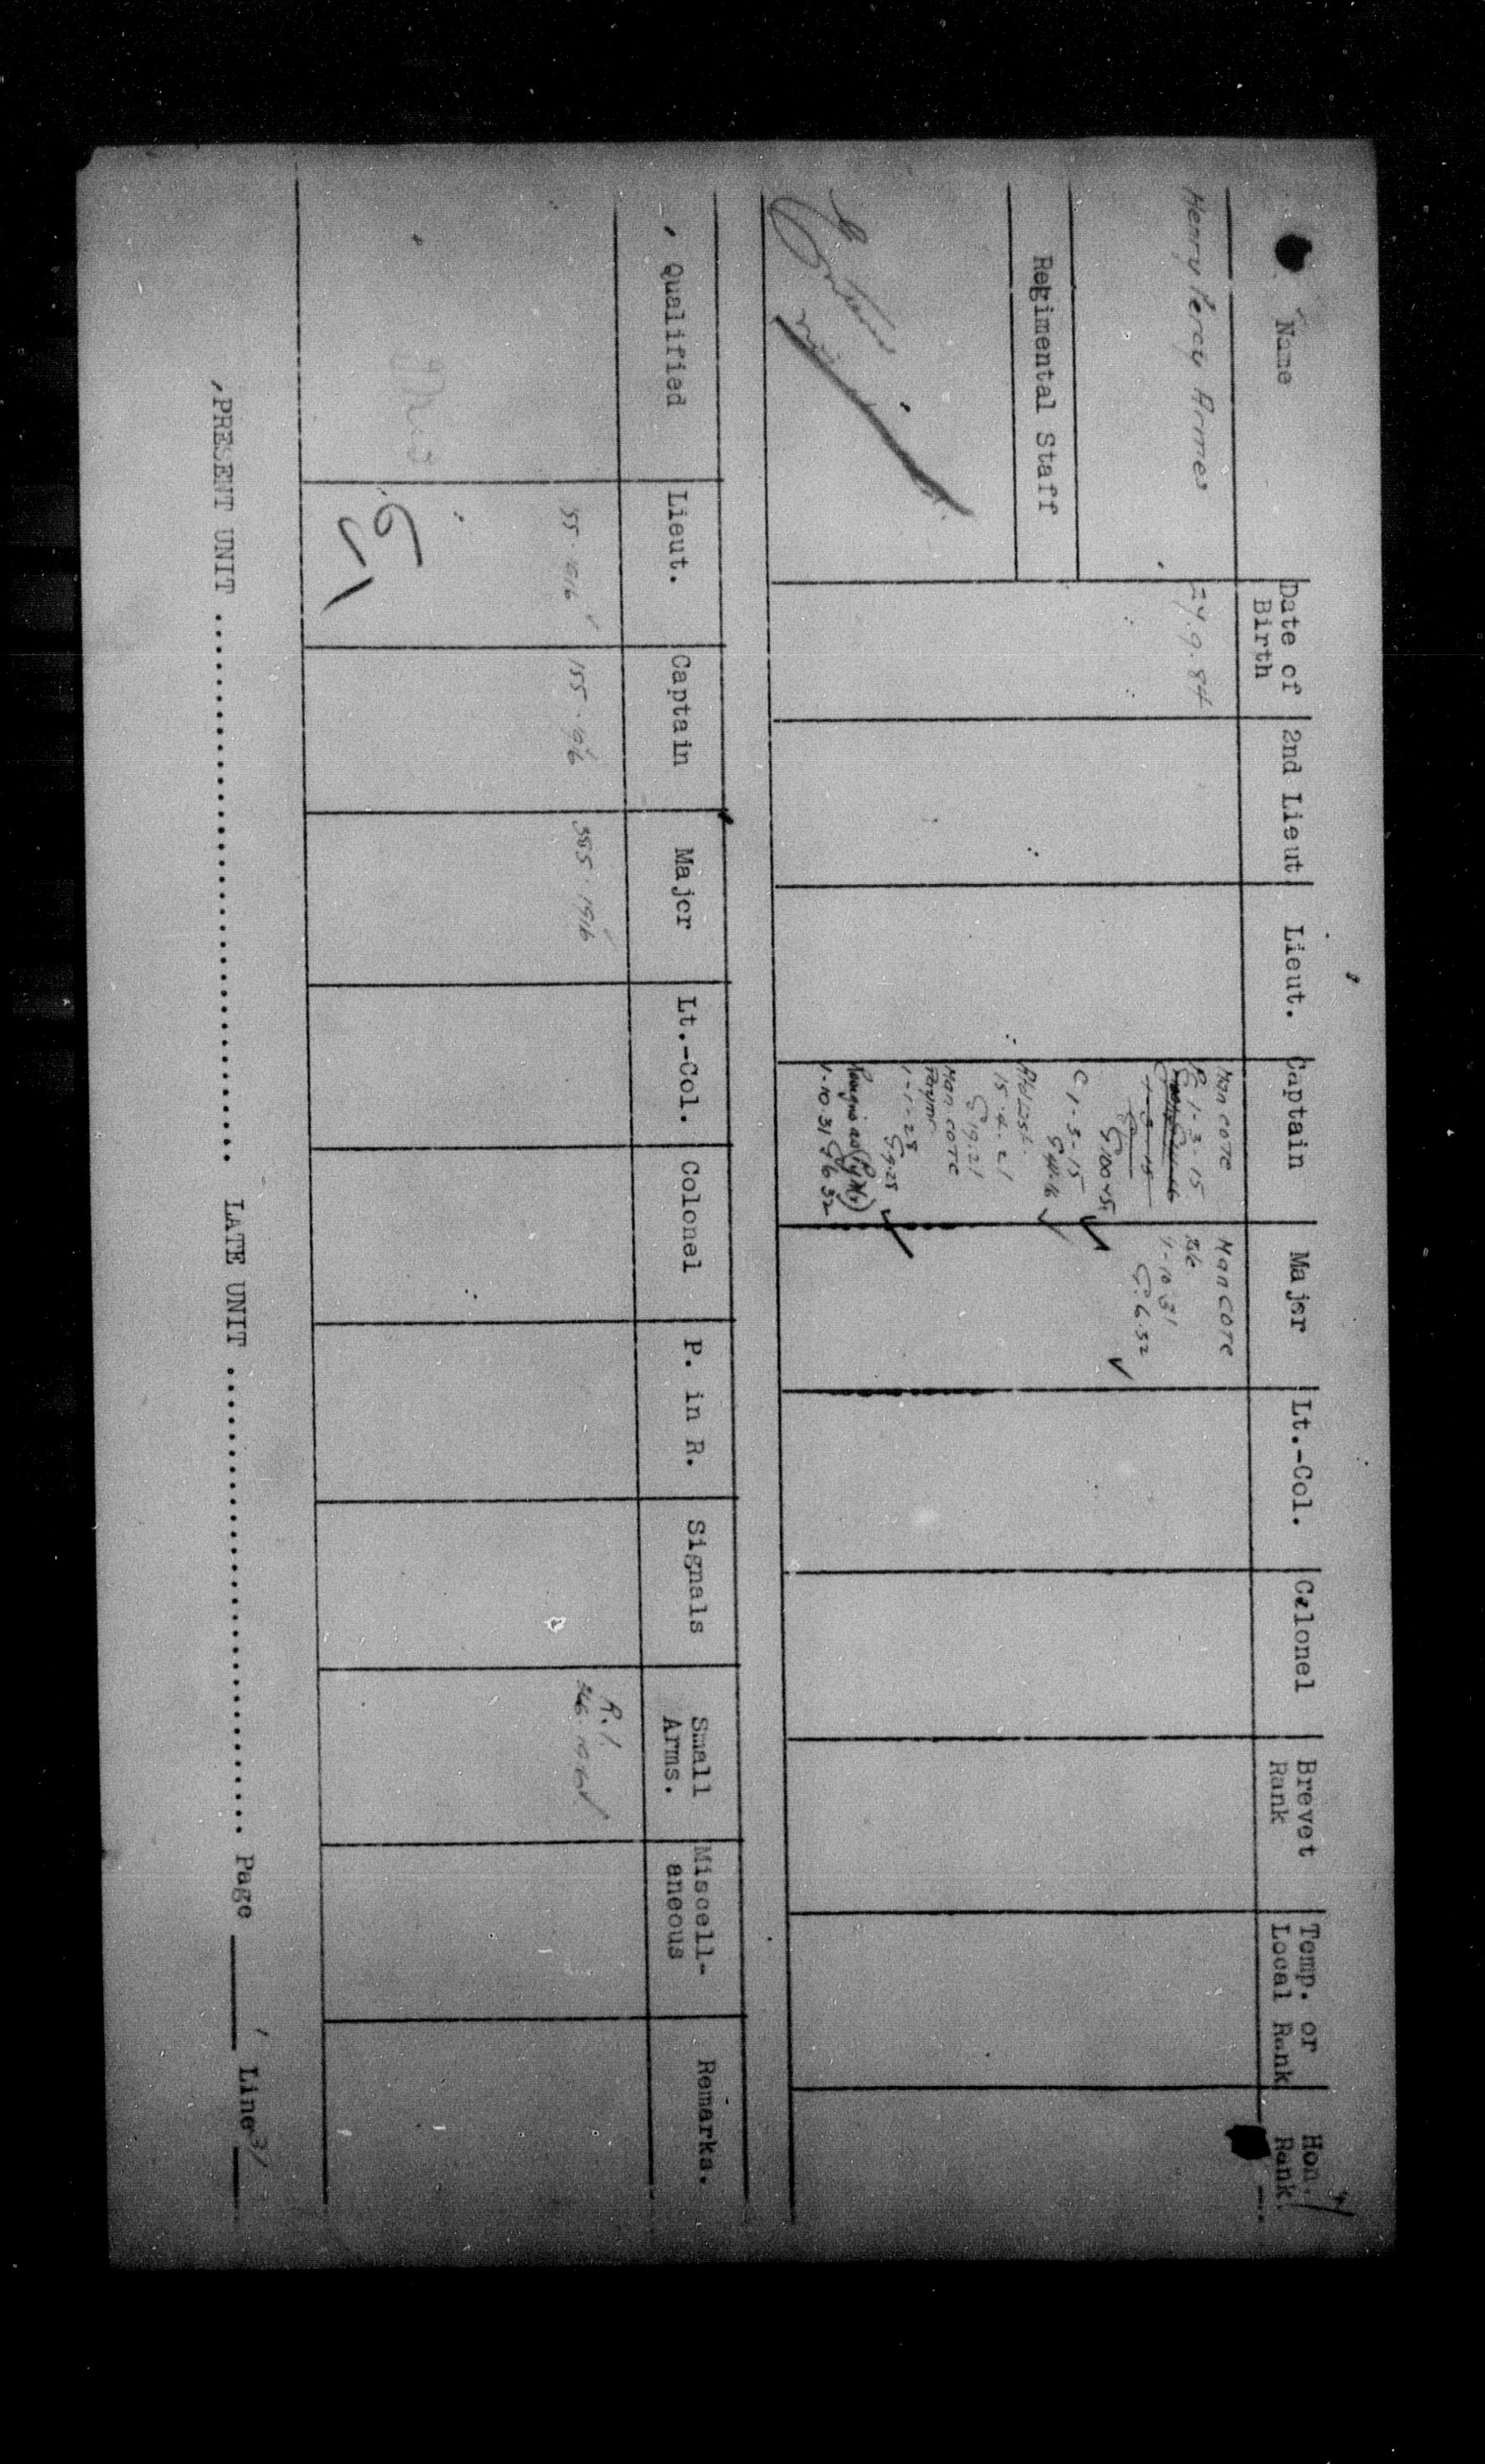 Name
Date of Birth
2nd Lieut
Lieut.
Captain
Major
Lt.-Col.
Colonel
Brevet Rank
Temp. or Local Rank
Hon. Rank.
Henry Percy Armes
24.9.84
Man COTC
1-3-15
1-3-15
C 1-3-15
15.4.21
G 19.21
Man COTC
Paymr
1-1-28
G 9.28
1-10.31 G 6.32
Man COTC
1-10.31
G. 6.32
Regimental Staff
Qualified
Lieut.
Captain
Major
Lt.-Col.
Colonel
P. in R.
Signals
Small Arms.
Miscell-
aneous
Remarks.
155.1916
155.1916
385.1916
R.1.
PRESENT UNIT .................................... LATE UNIT .................................... Page ____ Line 31